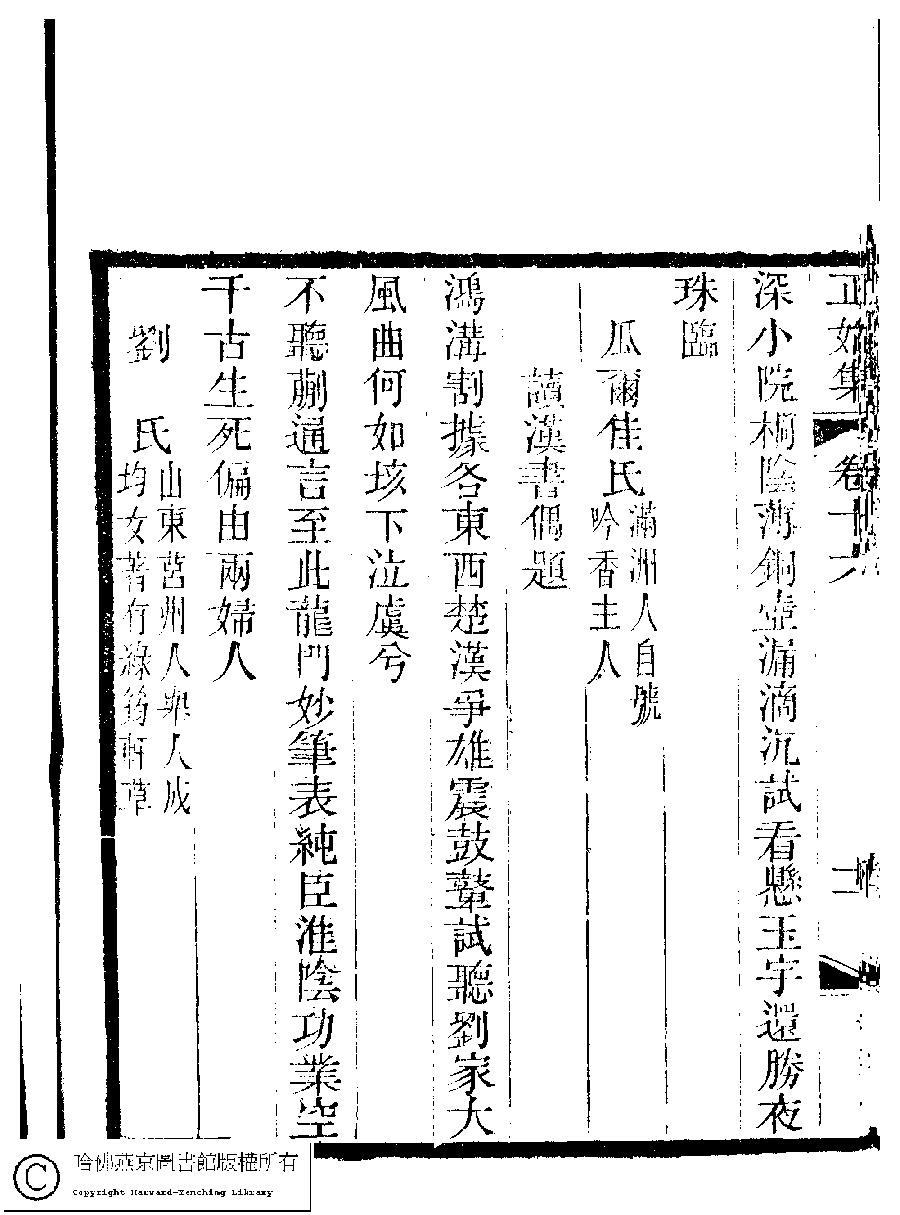 正始集 卷十六 二
深小院桐陰薄銅壺漏滴沉試看懸玉宇還勝夜
珠臨
瓜爾佳氏滿洲人自號
吟香主人
讀漢書偶題
鴻溝割據各東西楚漢爭雄震鼓鼙試聽劉家大
風曲何如垓下泣虞兮
不聽蒯通言至此龍門妙筆表純臣淮陰功業空
千古生死偏由兩婦人
劉 氏山東莒州人舉人成
均女著有綠筠軒草
哈佛燕京圖書館版權所有
Copyright Harvard-Yenching Library